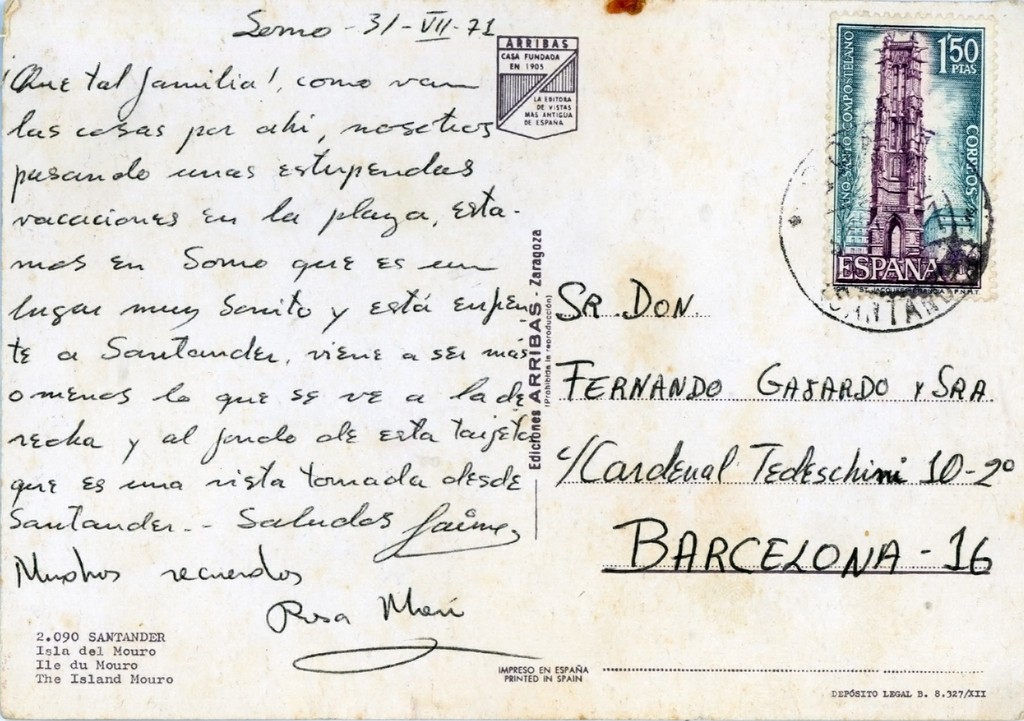 Somo - 31-VII-71
¡Que tal familia!, como van
las cosas por ahi, nosotros
pasando unas estupendas
vacaciones en la playa, esta-
mos en Somo que es un
lugar muy bonito y está enfren
te a Santander, viene a ser más
o menos lo que se ve a la de
recha y al fondo de esta tarjeta
que es una vista tomada desde
Santander.- Saludos Jaime
Muchos recuerdos
Rosa Mari
2.090 SANTANDER
Isla del Mouro
Ile du Mouro
The Island Mouro
ARRIBAS
CASA FUNDADA
EN 1905
LA EDITORA
DE VISTAS
MAS ANTIGUA
DE ESPAÑA
Ediciones ARRIBAS - Zaragoza
(Prohibida la reproducción)
1'50
PTAS
AÑO SANTO COMPOSTELANO
CORREOS
ESPAÑA
SANTANDER
SR. DON.
FERNANDO GAJARDO Y SRA.
c/Cardenal Tedeschini 10-2º
BARCELONA-16
IMPRESO EN ESPAÑA
PRINTED IN SPAIN
DEPÓSITO LEGAL B. 8.327/XII